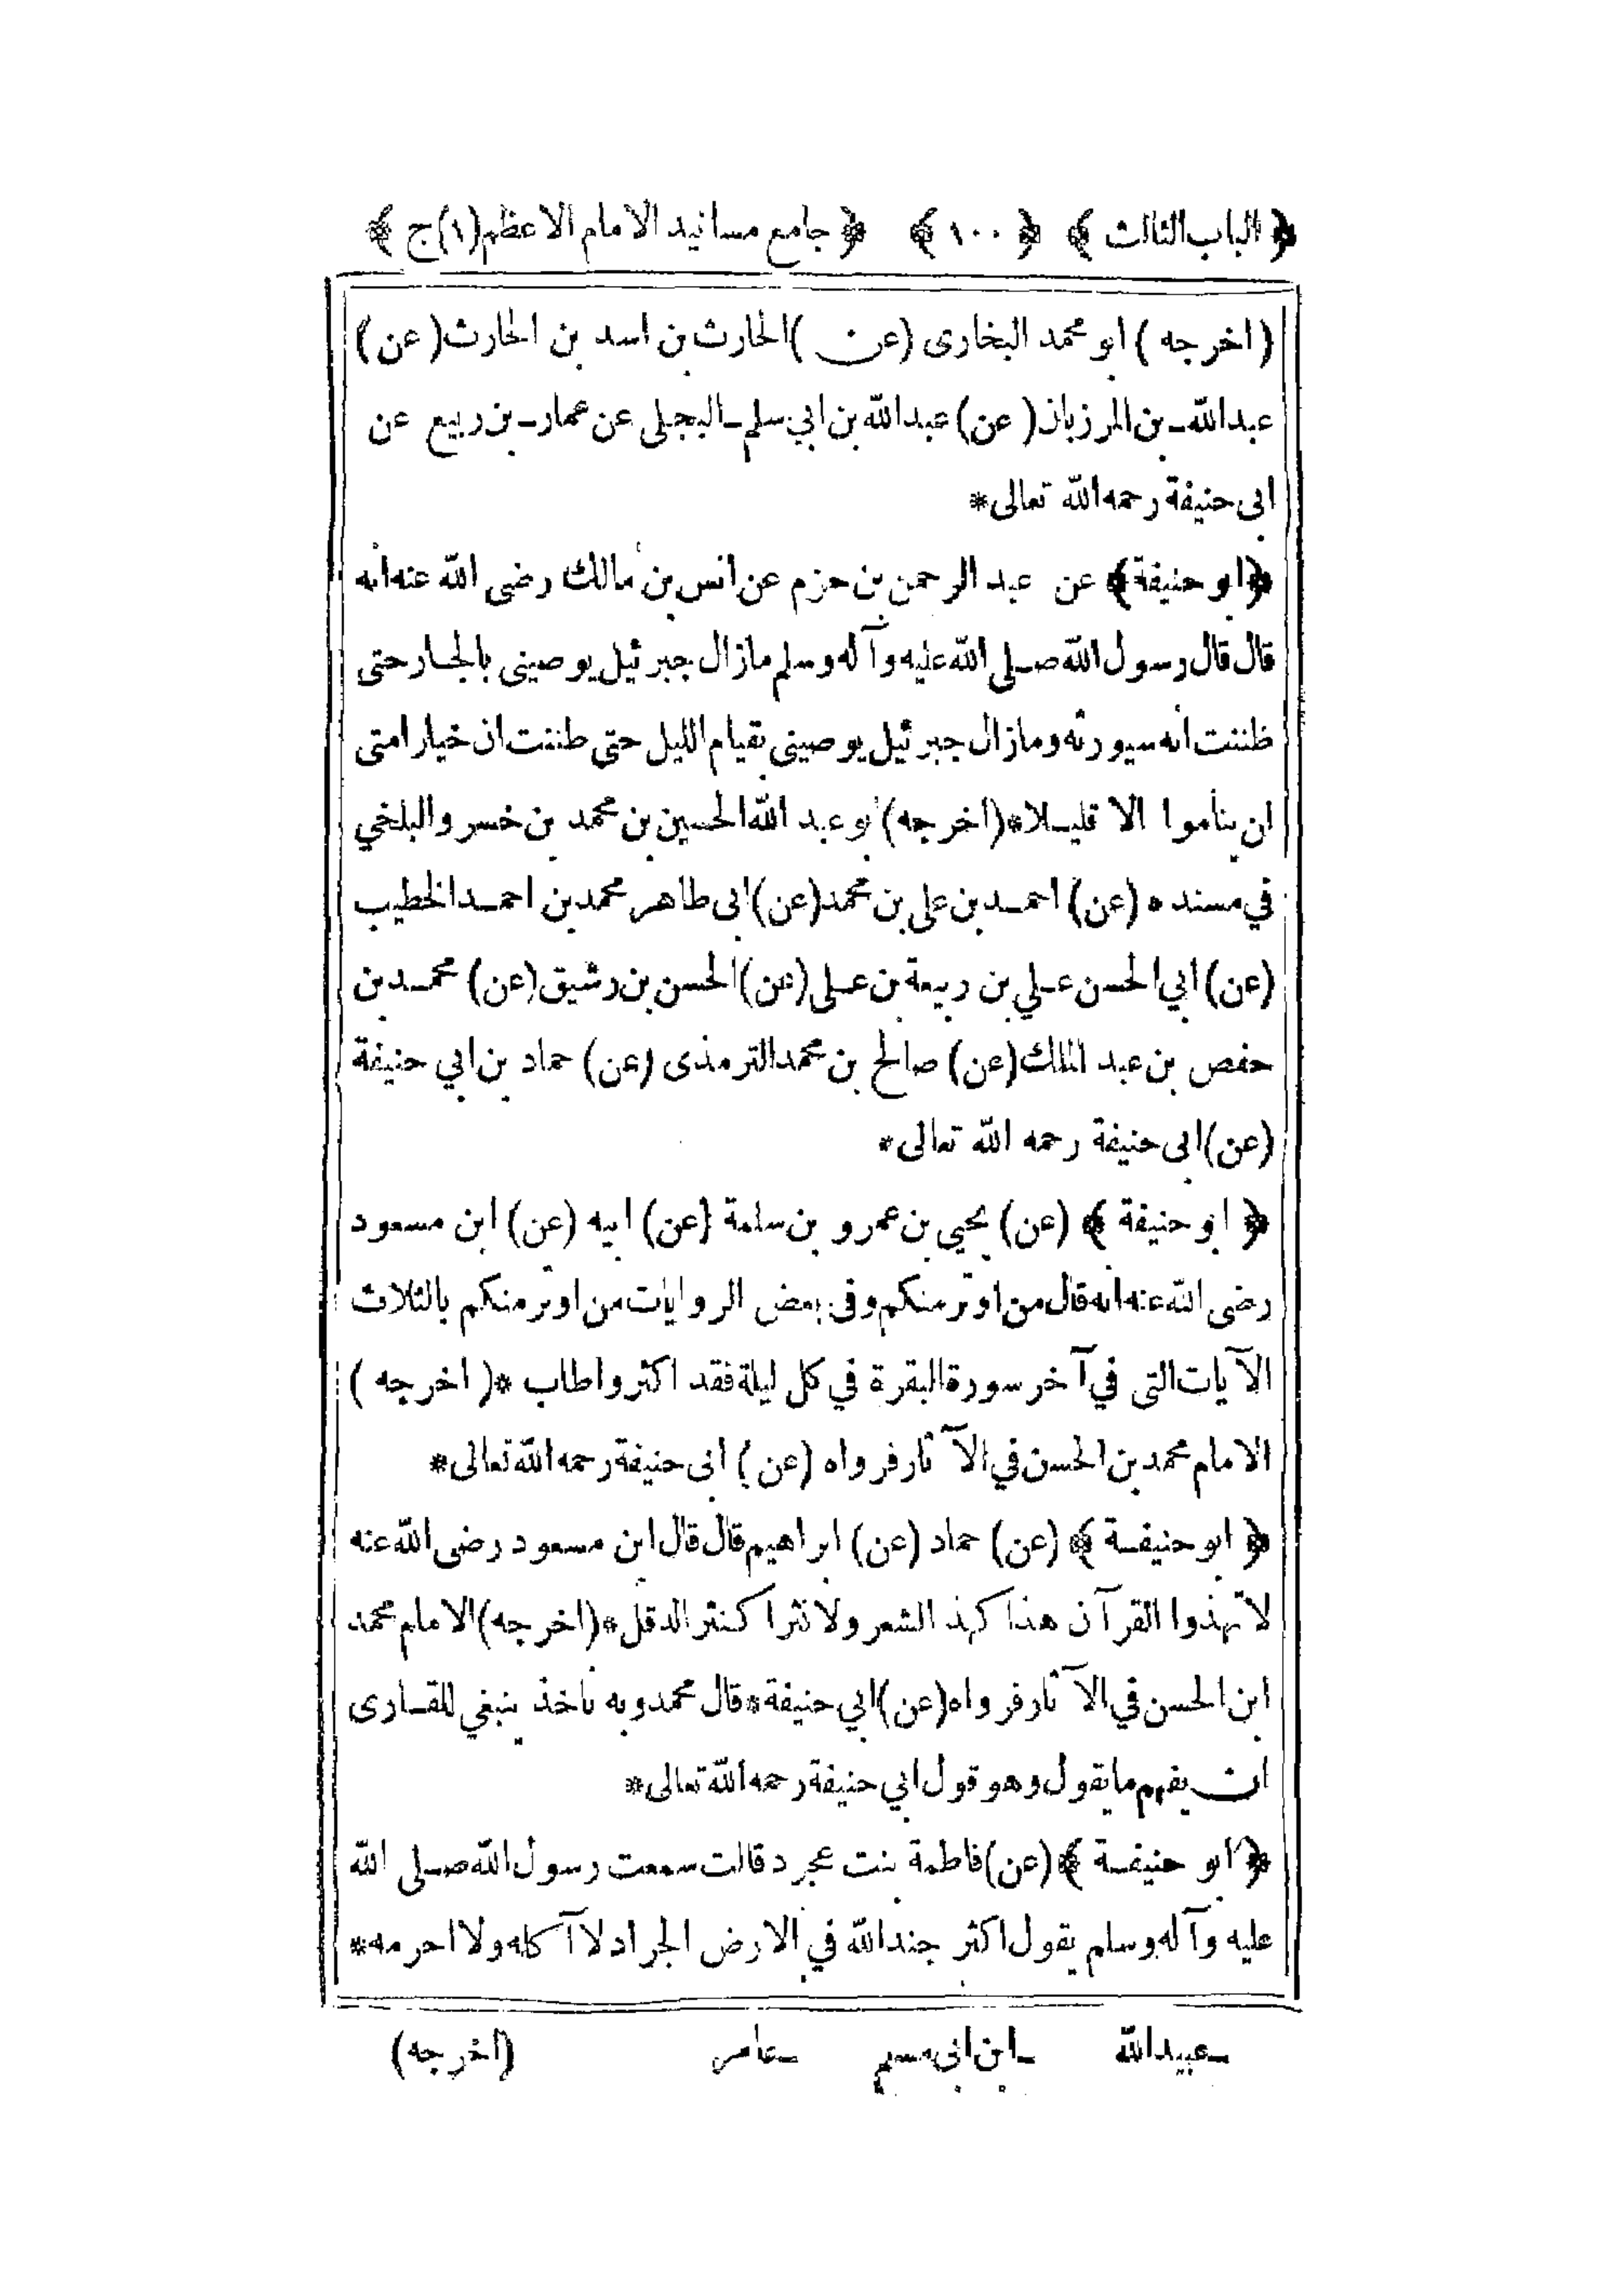 ﴿ الباب الثالث ﴾ ﴿ ١٠٠ ﴾ ﴿ جامع مسانيد الامام الاعظم(١)ج ﴾
( اخرجه ) ابو محمد البخارى (عن )الحارث بن اسد بن الحارث( عن )
عبدالله ـ بن المرزبان( عن )عبدالله بن ابي سلم ـ البجلى عن عمار ـ بن ربيع عن
ابى حنيفة رحمه الله تعالى*
﴿ابو حنيفة﴾ عن عبد الرحمن بن حزم عن انس بن مالك رضى الله عنه انه
قال قال رسول الله صلى الله عليه وآله وسلم مازال جبرئيل يوصينى بالجار حتى
ظننت أنه سيورثه ومازال جبرئيل يوصينى بقيام الليل حتى ظننت ان خيار امتى
ان يناموا الا قليلا*(اخرجه)ابو عبد الله الحسين بن محمد بن خسرو البلخي
في مسنده (عن) احمد بن على بن محمد(عن)ابى طاهر محمد بن احمد الخطيب
(عن)ابي الحسن علي بن ربيعة بن على(عن)الحسن بن رشيق(عن) محمد بن
حفص بن عبد الملك(عن) صالح بن محمد الترمذى (عن) حماد بن ابي حنيفة
(عن)ابى حنيفة رحمه الله تعالى*
﴿ ابو حنيفة ﴾ (عن) يحيي بن عمرو بن سلمة (عن) ابيه (عن) ابن مسعود
رضى الله عنه انه قال من اوتر منكم وفى بعض الروايات من اوتر منكم بالثلاث
الآيات التى في آخر سورة البقرة في كل ليلة فقد اكثر واطاب *( اخرجه )
الامام محمد بن الحسن في الآثار فرواه (عن) ابى حنيفة رحمه الله تعالى*
﴿ ابو حنيفة ﴾ (عن) حماد (عن) ابراهيم قال قال ابن مسعود رضى الله عنه
لا تهذوا القرآن هذا كهذ الشعر ولا نثرا كنثر الدقل*(اخرجه)الامام محمد
ابن الحسن في الآثار فرواه(عن)ابي حنيفة*قال محمد وبه ناخذ ينبغي للقارى
ان يفهم ما يقول وهو قول ابي حنيفة رحمه الله تعالى*
﴿ ابو حنيفة ﴾(عن)فاطمة بنت عجرد قالت سمعت رسول الله صلى الله
عليه وآله وسلم يقول اكثر جند الله في الارض الجراد لا آكله ولا احرمه*
ـ عبيدالله ـ ابن ابى ـ عامر (اخرجه)